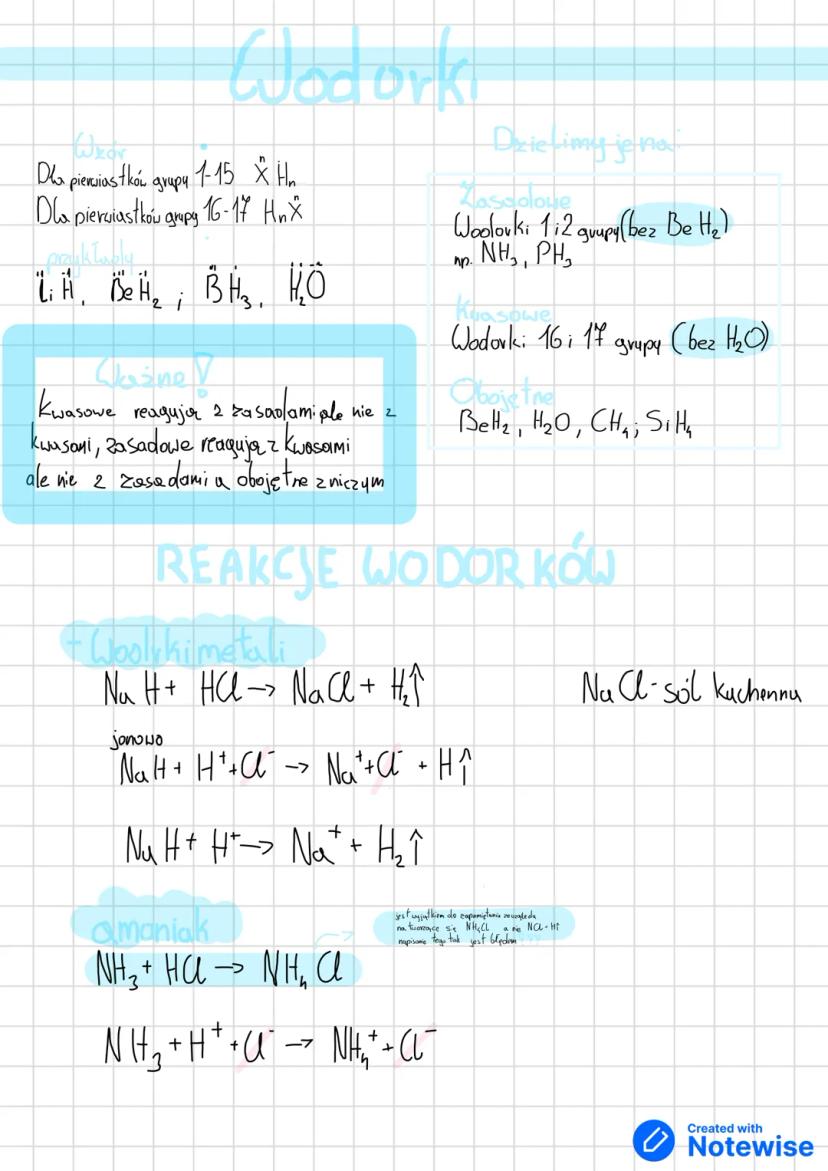 Wodorki
Wzór
Dla pierwiastków grupy 1-15 X^n H_n
Dla pierwiastków grupy 16-17 H_n X^n
przykłady
LiH, BeH₂; BH₃, H₂O
Ważne!
Kwasowe reagują z zasadami ale nie z
kwasami, zasadowe reagują z kwasami
ale nie z zasadami a obojętne z niczym
Dzielimy je na:
Zasadowe
Wodorki 1 i 2 grupy (bez BeH₂)
np. NH₃, PH₃
Kwasowe
Wodorki 16 i 17 grupy (bez H₂O)
Obojętne
BeH₂, H₂O, CH₄; SiH₄
REAKCJE WODORKÓW
NaH + HCl → NaCl + H₂↑
NaCl - sól kuchenna
jonowo
NaH + H⁺ + Cl⁻ → Na⁺ + Cl⁻ + H↑
NaH + H⁺ → Na⁺ + H₂↑
amoniak
jest wyjątkiem do zapamiętania ze względu
na tworzące się NH₄Cl a nie
napisanie tego tak jest błędem
NH₃ + HCl → NH₄Cl
NH₃ + H⁺ + Cl⁻ → NH₄⁺ + Cl⁻
Created with
Notewise